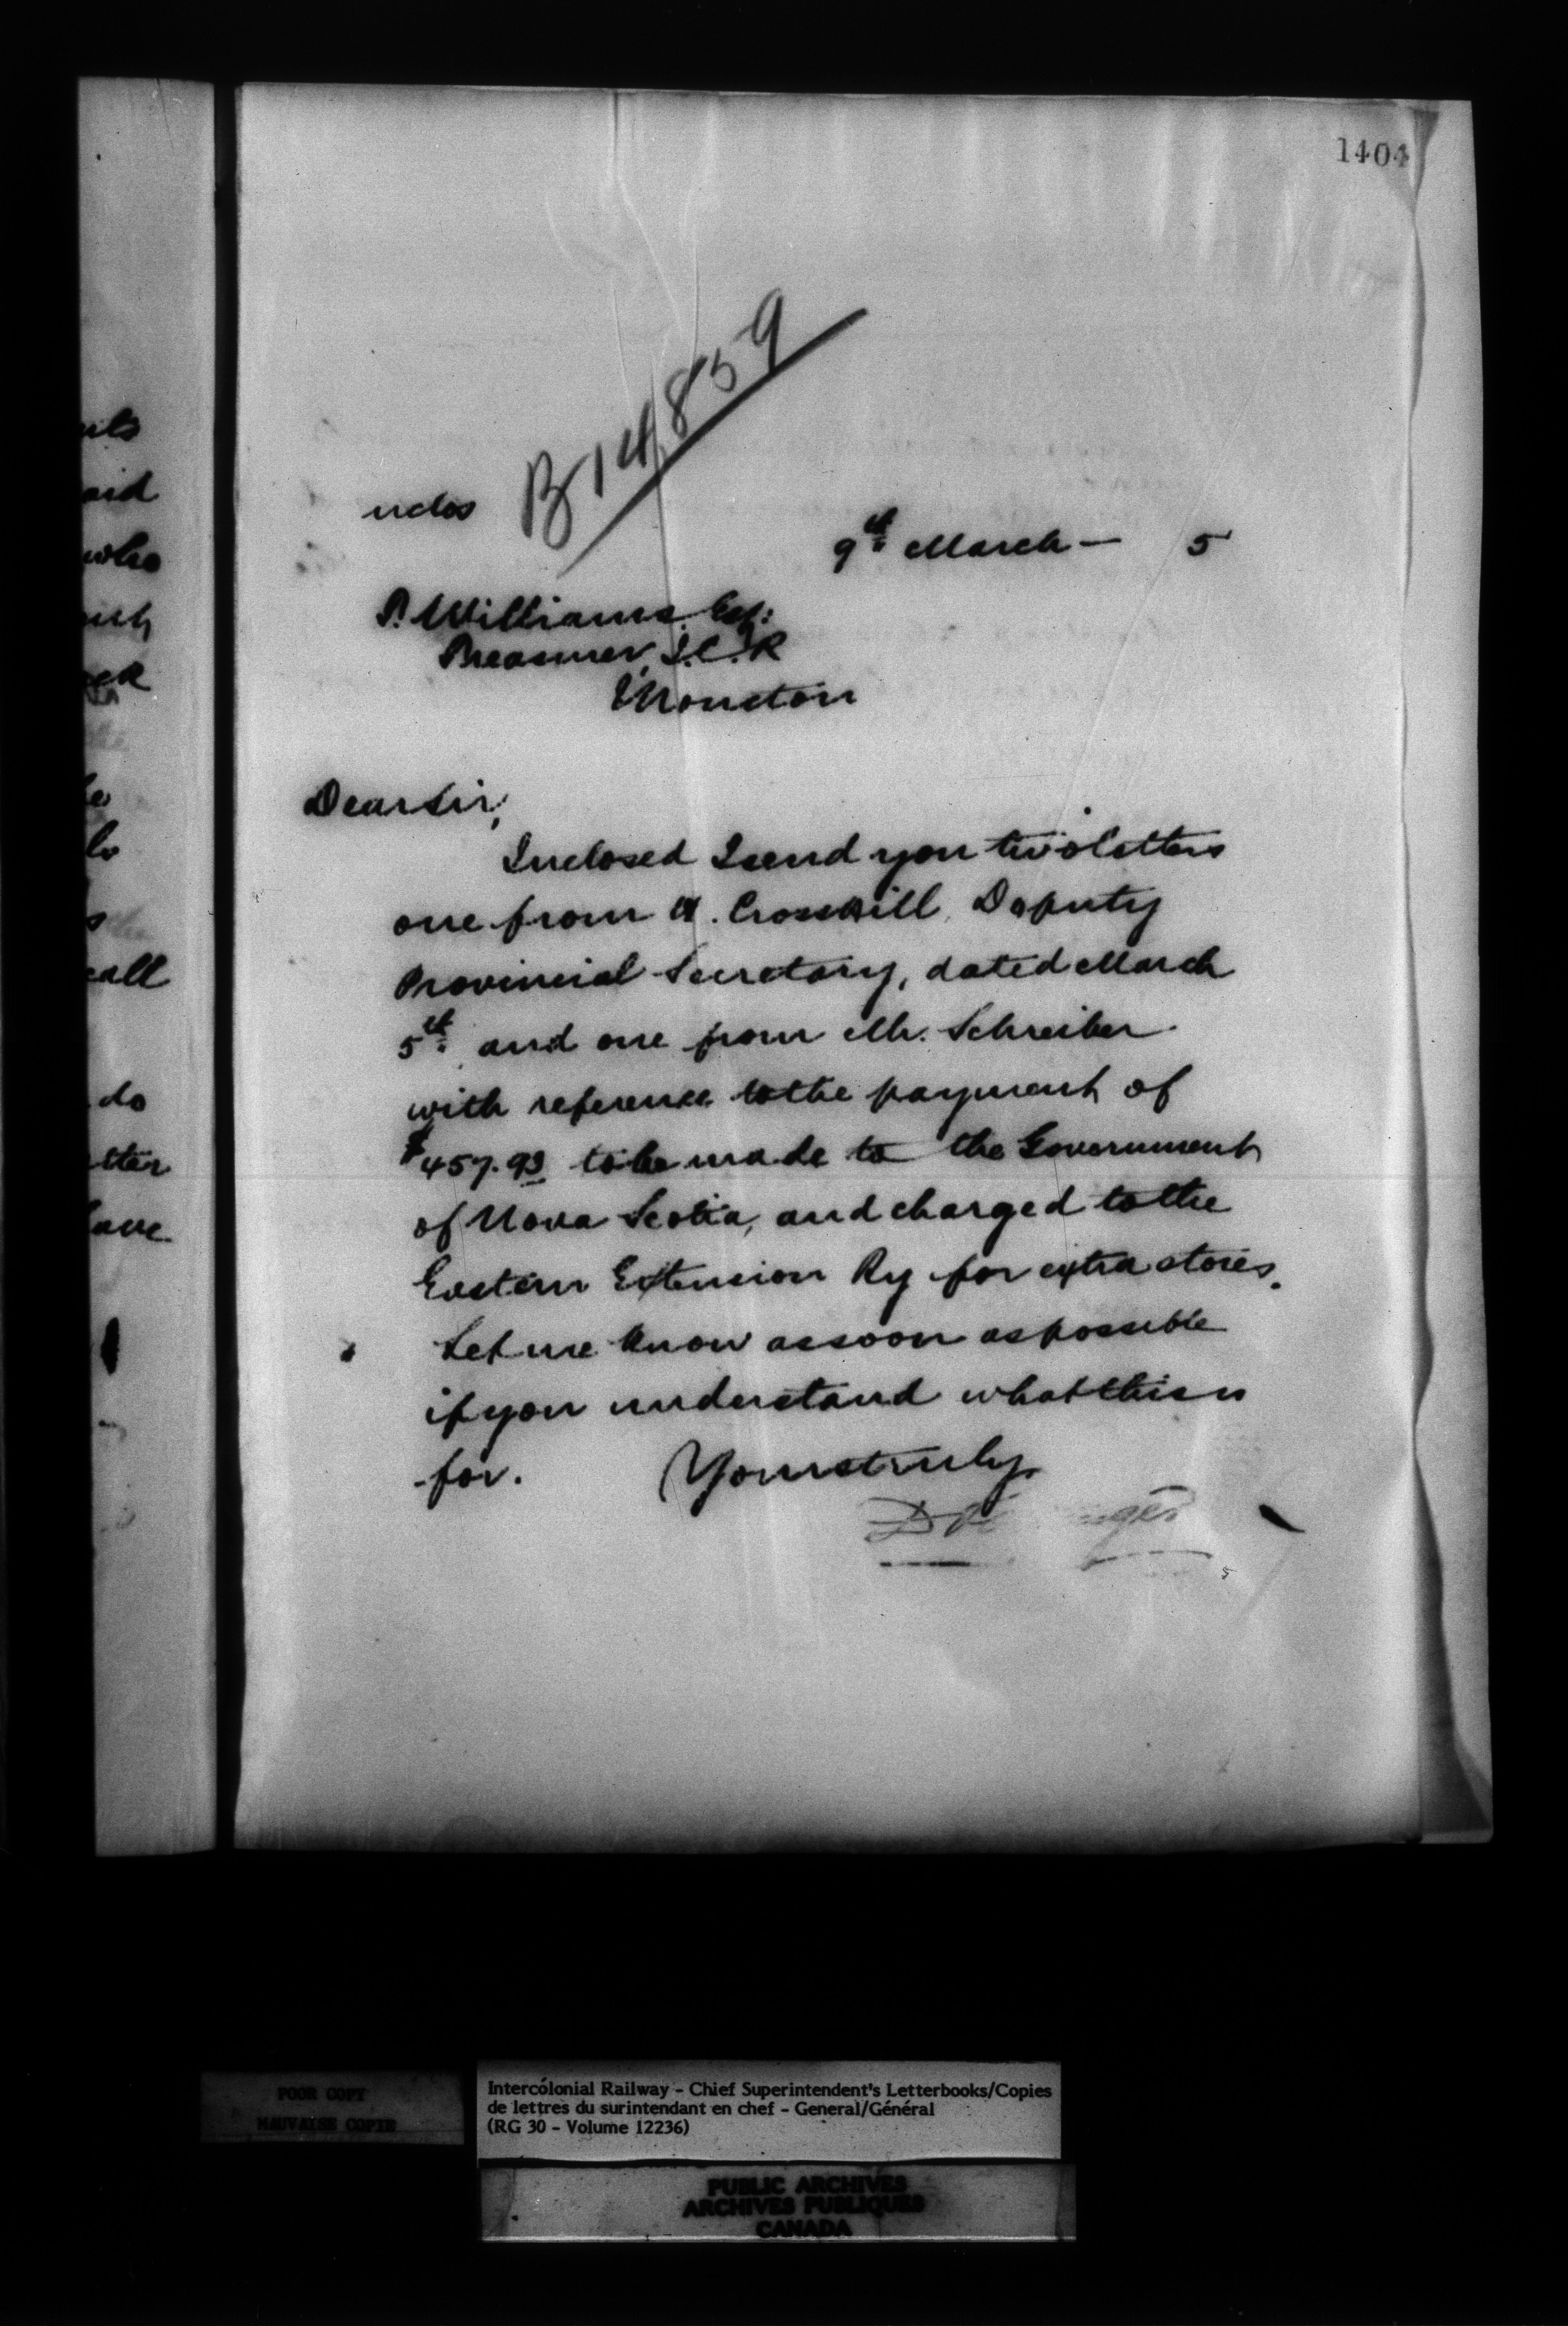 1404
B14859
nclos
9th March — 5
P. Williams Esq:
Treasurer, I.C.R
Moncton
Dear Sir,
Inclosed I send you two letters
one from H. Crosskill, Deputy
Provincial Secretary, dated March
5th and one from Mr. Schreiber
with reference to the payment of
$457.93 to be made to the Government
of Nova Scotia, and charged to the
Eastern Extension Ry for extra stores.
Let me know as soon as possible
if you understand what this is
for.
Yours truly
D
POOR COPY
MAUVAISE COPIE
Intercolonial Railway - Chief Superintendent's Letterbooks/Copies
de lettres du surintendant en chef - General/Général
(RG 30 - Volume 12236)
PUBLIC ARCHIVES
ARCHIVES PUBLIQUES
CANADA